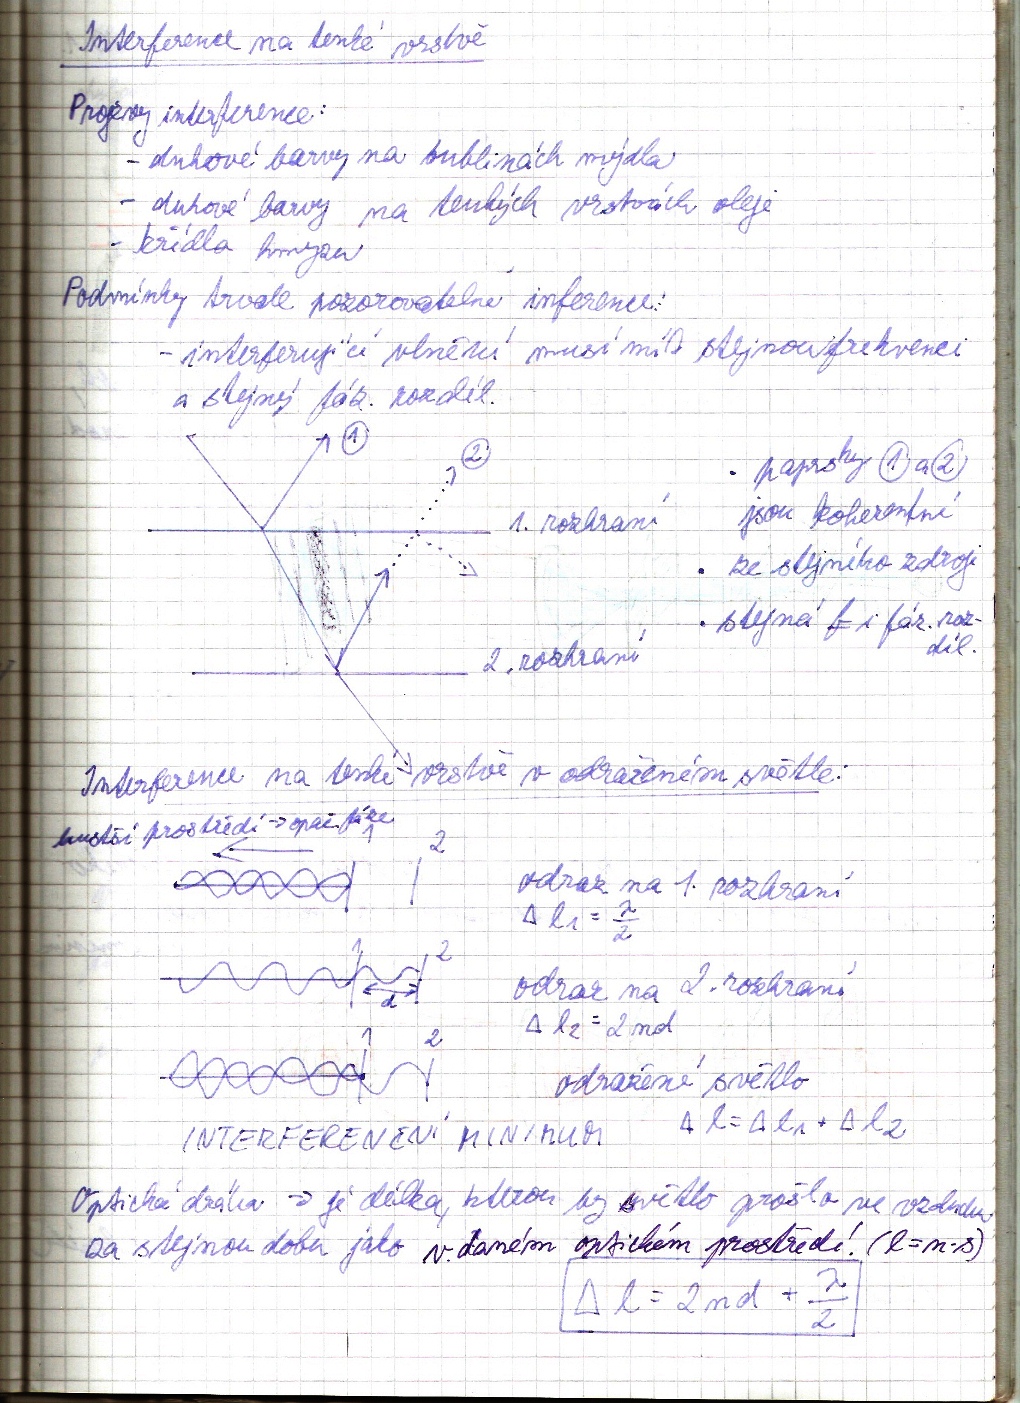 Interference na tenké vrstvě
Projevy interference:
- duhové barvy na bublinách mýdla
- duhové barvy na tenkých vrstvách oleje
- křídla hmyzu
Podmínky trvale pozorovatelné inference:
- interferující vlnění musí mít stejnou frekvenci
a stejný fáz. rozdíl.
1
2
1. rozhraní
2. rozhraní
• paprsky 1 a 2
jsou koherentní
• ze stejného zdroje
• stejná f i fáz. roz-
díl.
Interference na tenké vrstvě v odraženém světle:
hustší prostředí → opač. fáze
1 2
odraz na 1. rozhraní
Δ l₁ = λ/2
1 2
d
odraz na 2. rozhraní
Δ l₂ = 2nd
1 2
odražené světlo
INTERFERENČNÍ MINIMUM
Δ l = Δ l₁ + Δ l₂
Optická dráha → je délka, kterou by světlo prošlo ve vzduchu
za stejnou dobu jako v daném optickém prostředí. (l = n·s)
Δ l = 2nd + λ/2